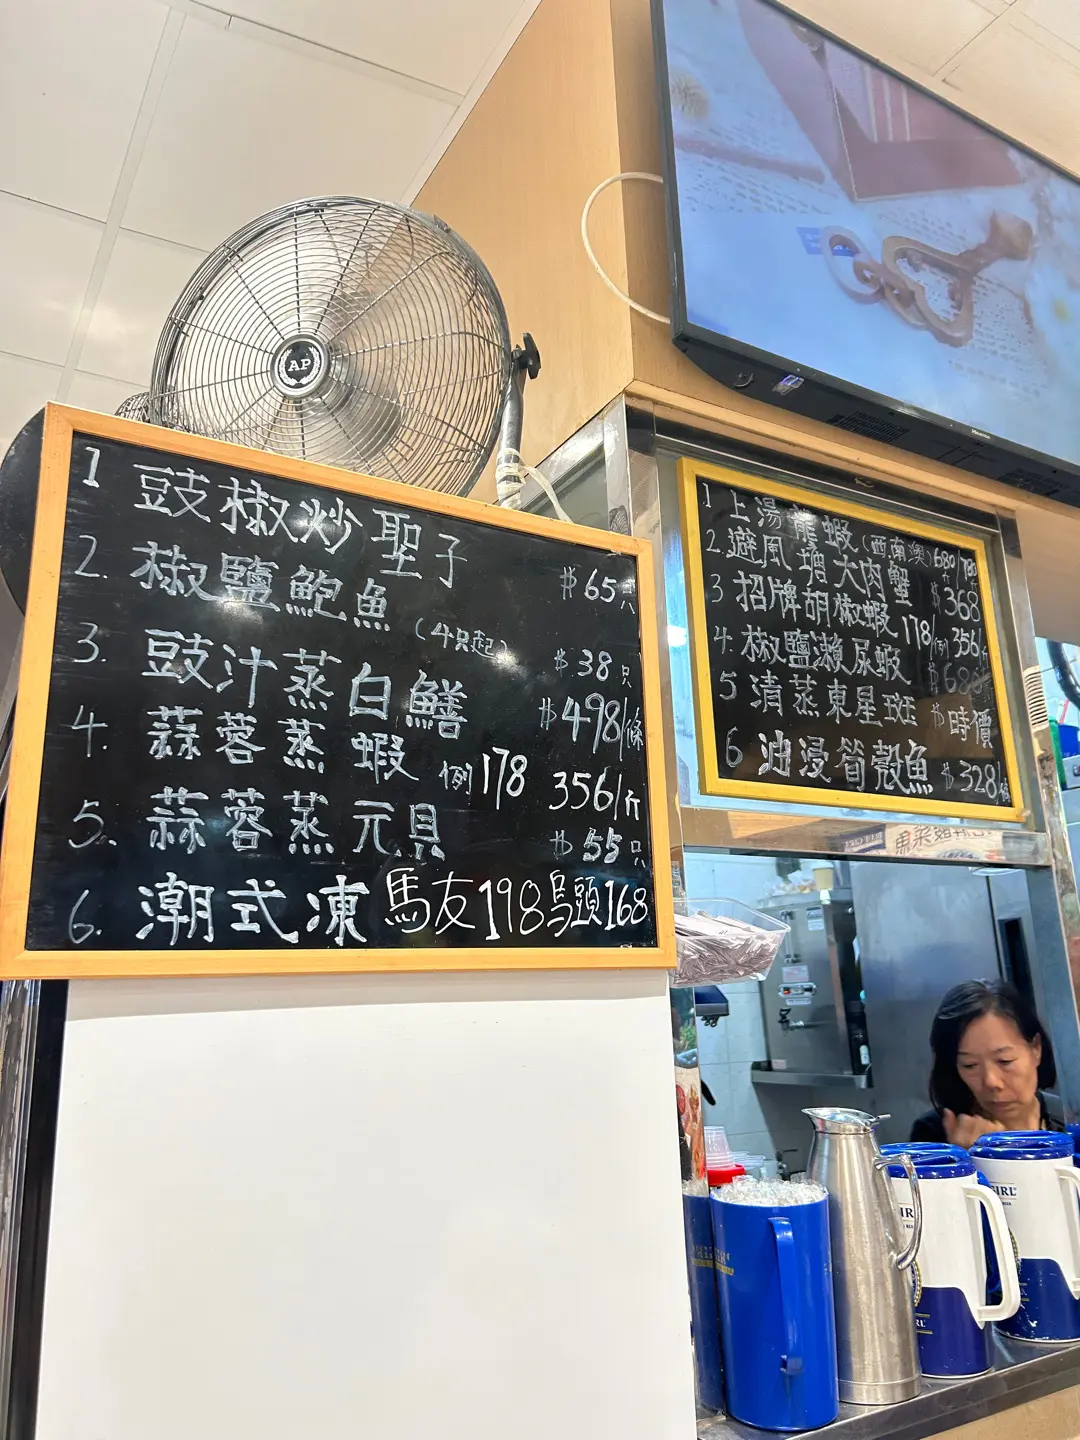 AP
1 豉椒炒聖子 $65只
2. 椒鹽鮑魚(4只起) $38只
3. 豉汁蒸白鱔 $498/條
4. 蒜蓉蒸蝦 例178 356/斤
5. 蒜蓉蒸元貝 $55只
6. 潮式凍馬友198烏頭168
Hisense
1 上湯龍蝦(西南澳)680/780
2. 避風塘大肉蟹 $368
3 招牌胡椒蝦178/例356/斤
4. 椒鹽瀨尿蝦 $680
5 清蒸東星斑 $時價
6 油浸筍殼魚 $328/條